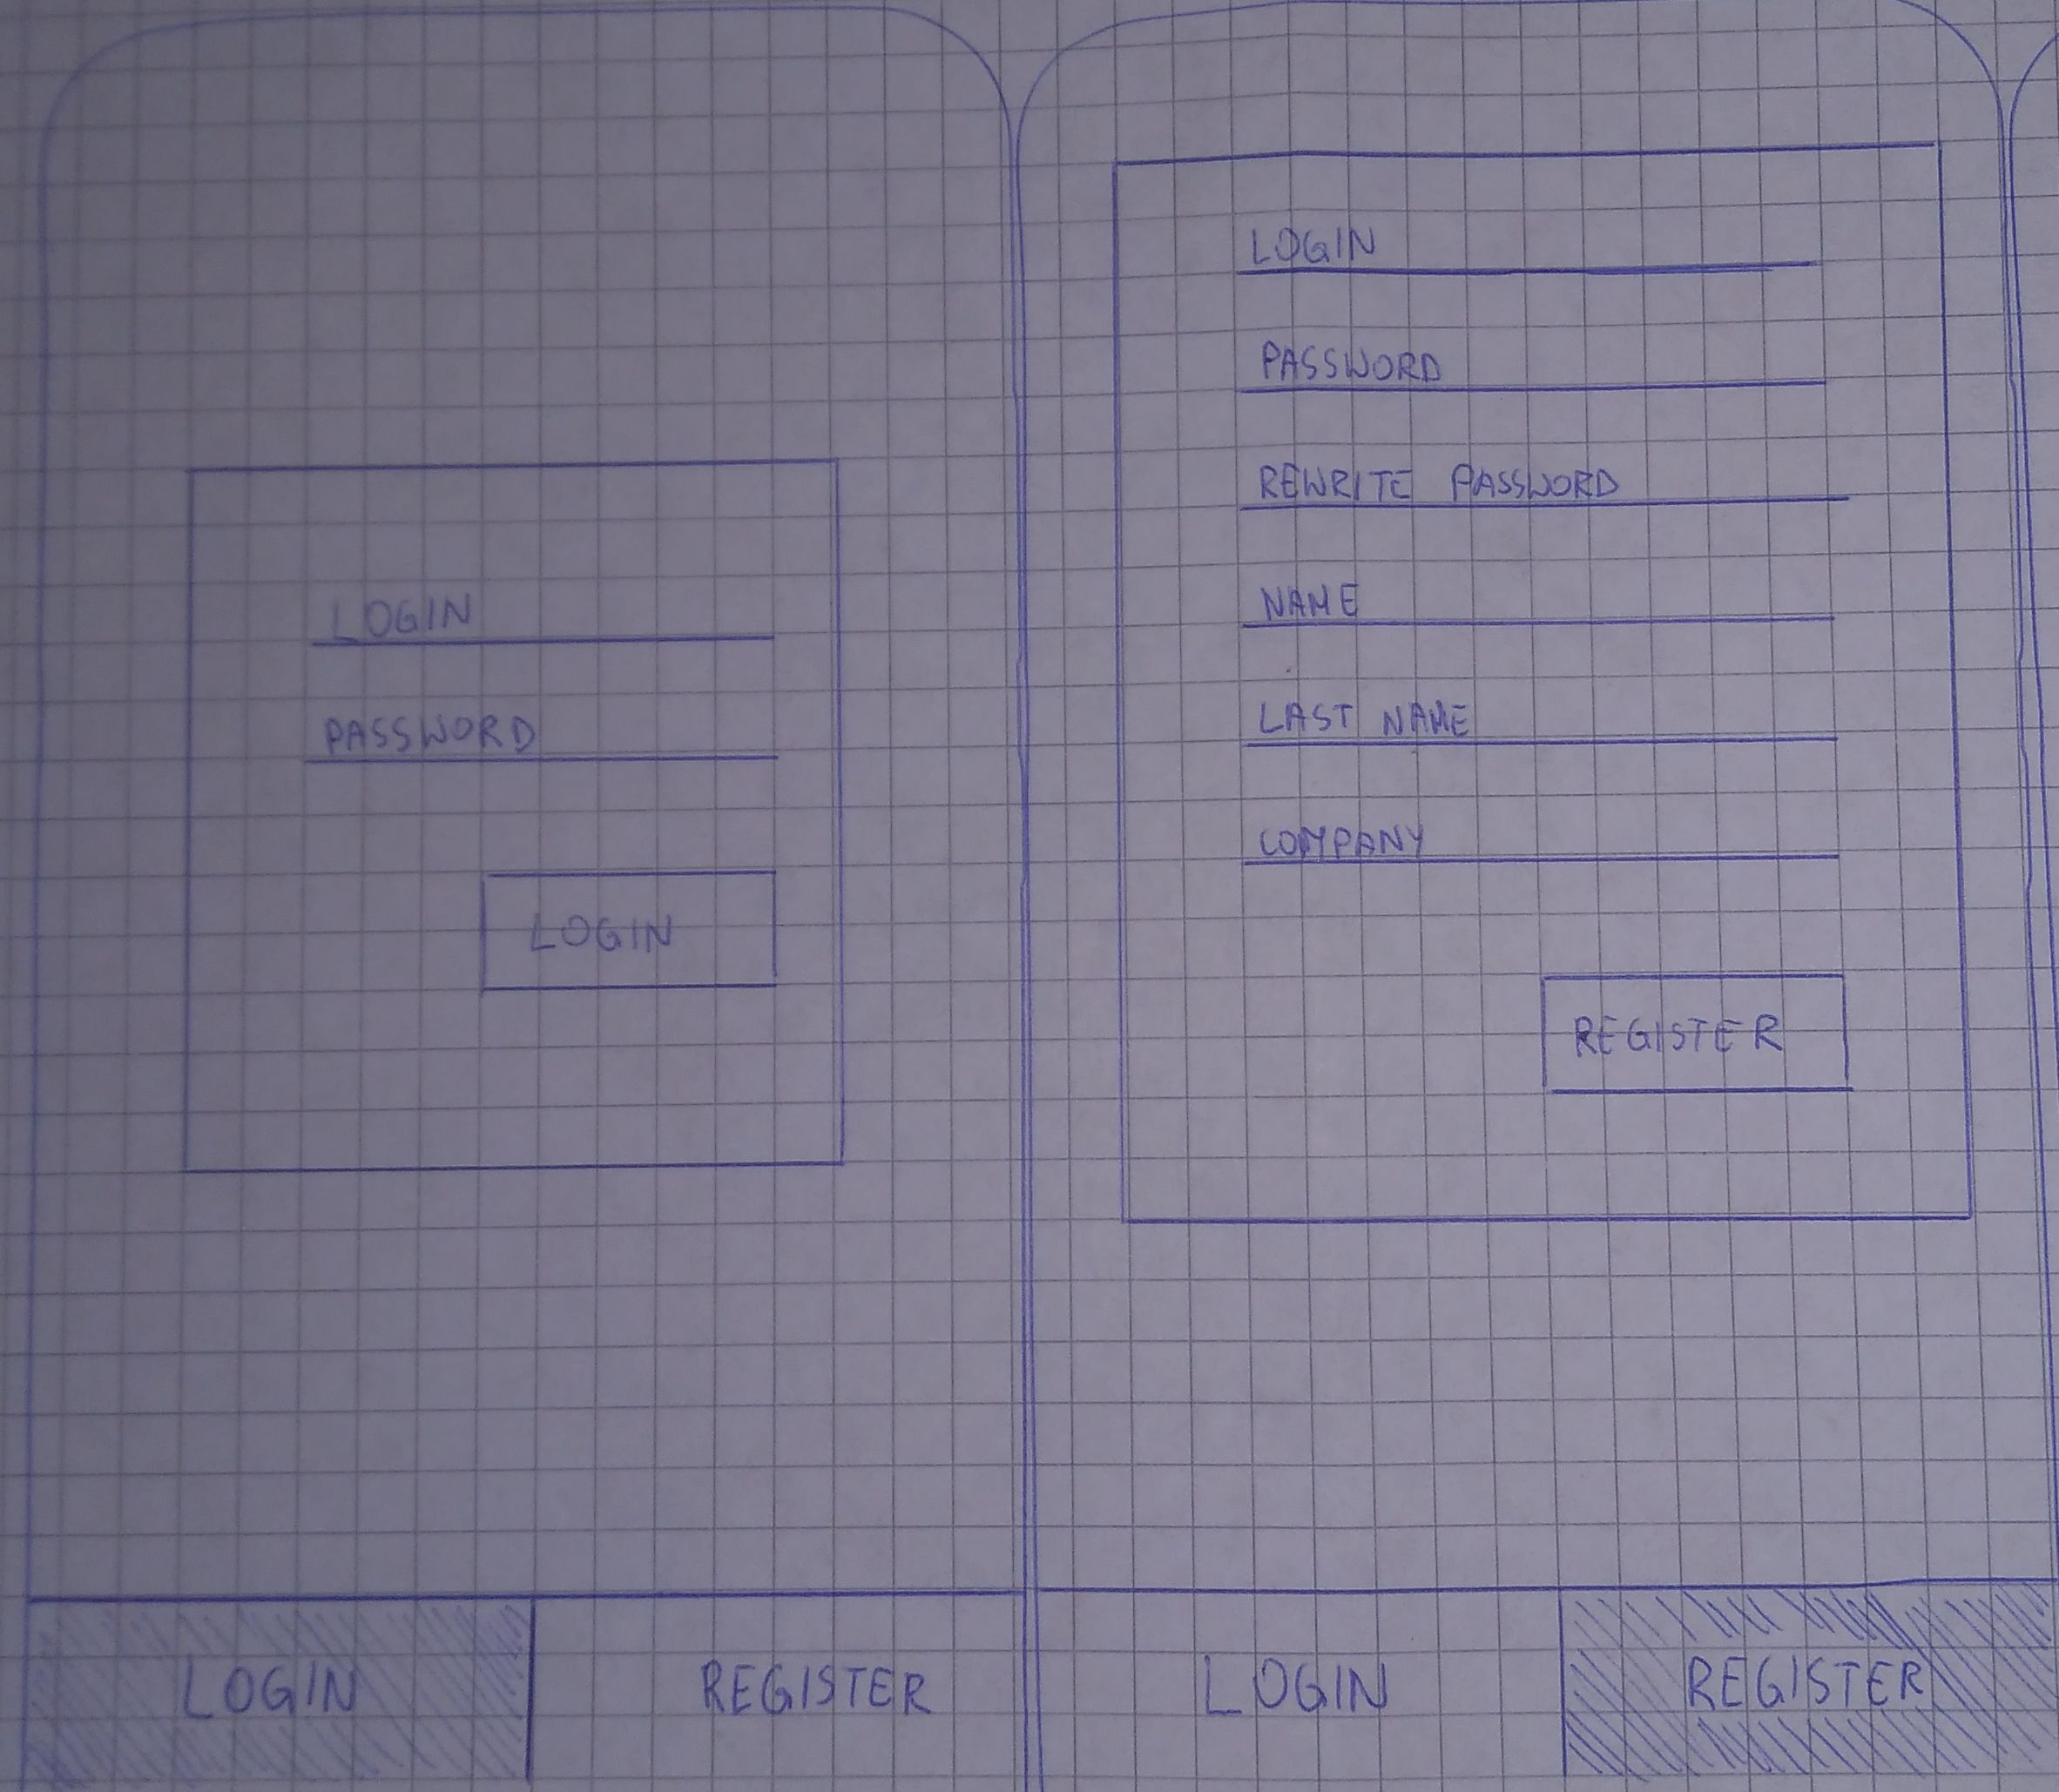 LOGIN
PASSWORD
LOGIN
LOGIN
REGISTER
LOGIN
PASSWORD
REWRITE PASSWORD
NAME
LAST NAME
COMPANY
REGISTER
LOGIN
REGISTER